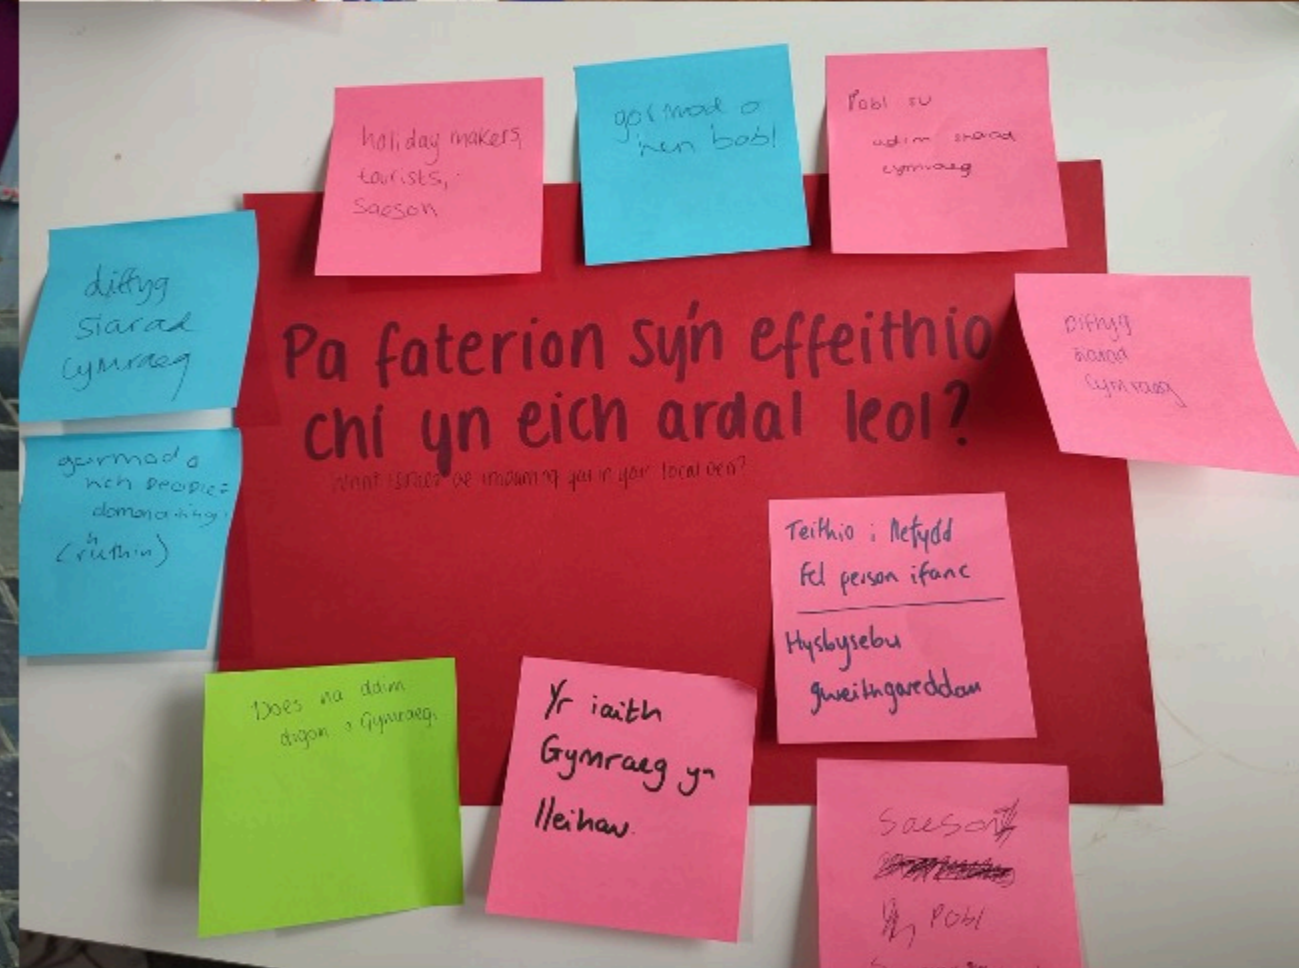 holiday makers,
tourists,
Saeson
gormod o
hen bobl
Pobl su
ddim siarad
cymraeg
diffyg
siarad
Cymraeg
Pa faterion sy'n effeithio
chi yn eich ardal leol?
What issues are impacting you in your local area?
Diffyg
siarad
Cymraeg
gormod o
rich people =
(ruthin)
Teithio i Nefydd
fel person ifanc
Hysbysebu
gweithgareddau
Does na ddim
digon o Gymraeg.
Yr iaith
Gymraeg yn
lleihau.
Saeson
Pobl